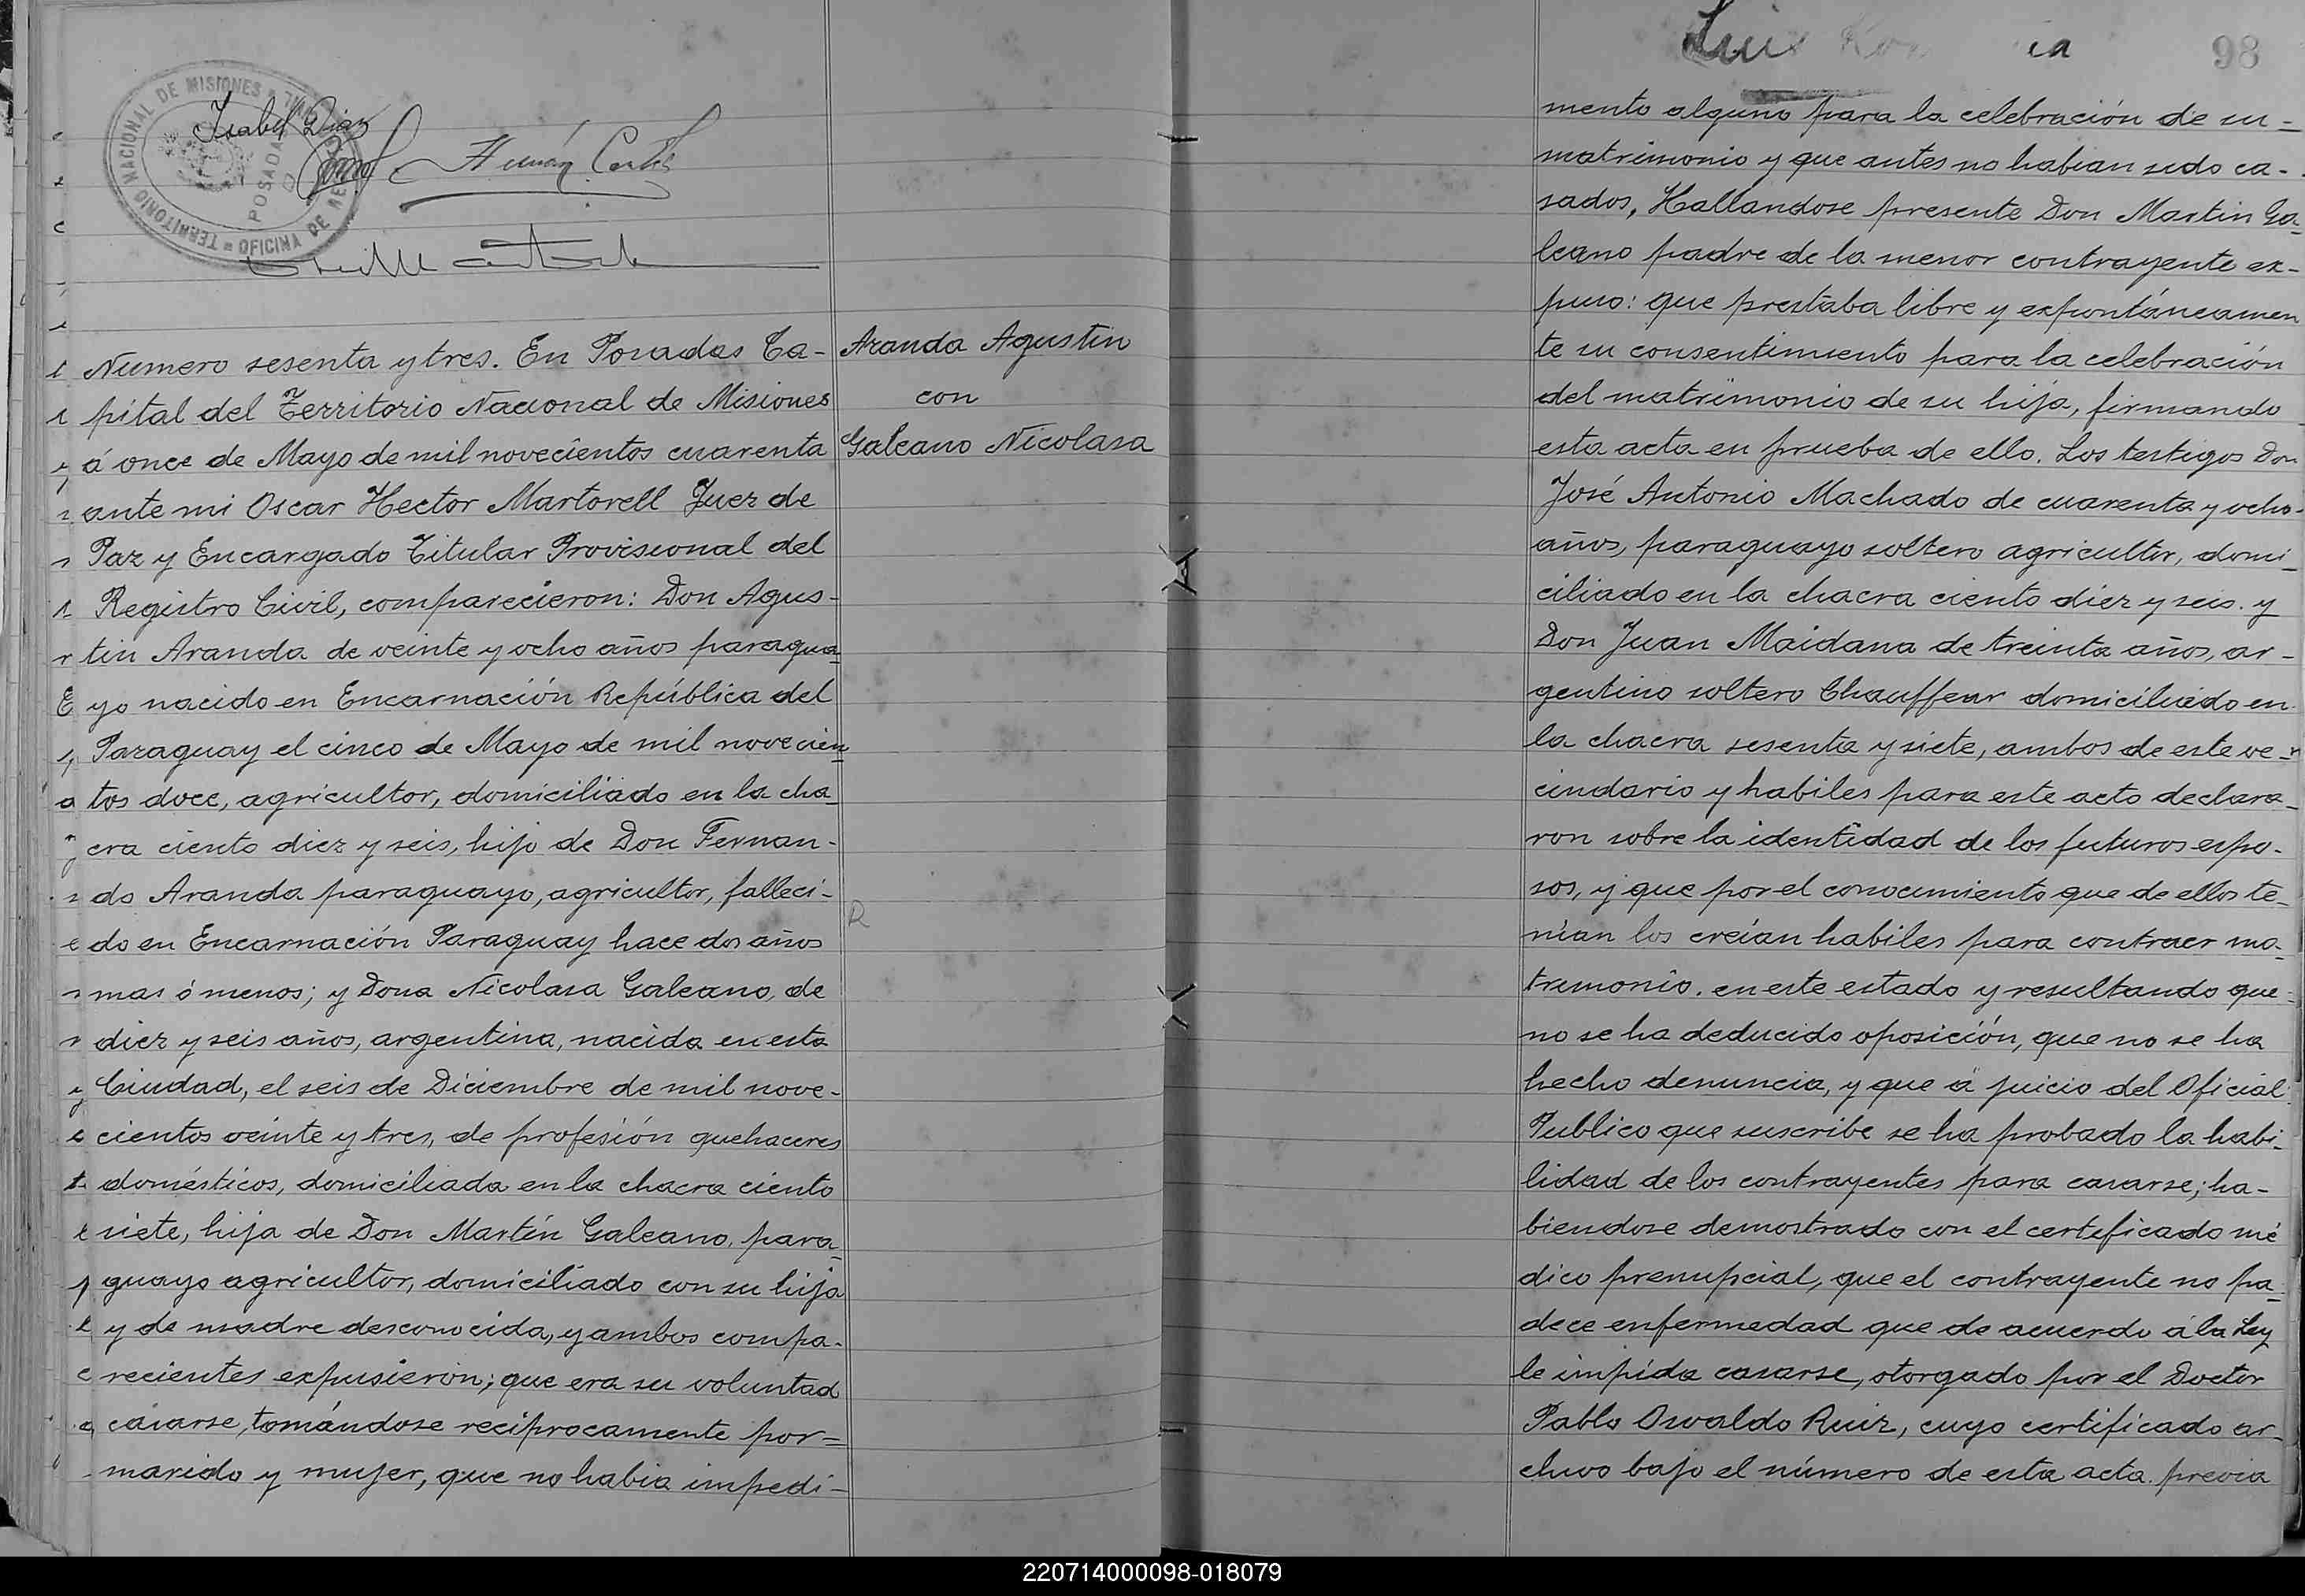 TERRITORIO NACIONAL DE MISIONES
OFICINA DE
POSADAS
Isabel Diaz
Hernán Cortés
Numero sesenta y tres. En Posadas Ca-
pital del Territorio Nacional de Misiones
á once de Mayo de mil novecientos cuarenta
ante mi Oscar Hector Martorell Juez de
Paz y Encargado Titular Provisional del
Registro Civil, comparecieron: Don Agus-
tin Aranda de veinte y ocho años paragua-
yo nacido en Encarnación República del
Paraguay el cinco de Mayo de mil novecien-
tos doce, agricultor, domiciliado en la cha-
cra ciento diez y seis, hijo de Don Fernan-
do Aranda paraguayo, agricultor, falleci-
do en Encarnación Paraguay hace dos años
mas ó menos; y Dona Nicolasa Galeano, de
diez y seis años, argentina, nacida en esta
Ciudad, el seis de Diciembre de mil nove-
cientos veinte y tres, de profesión quehaceres
domésticos, domiciliada en la chacra ciento
siete, hija de Don Martín Galeano, para-
guayo agricultor, domiciliado con su hija
y de madre desconocida, y ambos compa-
recientes expusieron; que era su voluntad
casarse, tomándose reciprocamente por=
marido y mujer, que no habia impedi-
Aranda Agustin
con
Galeano Nicolasa
R
Luis
98
mento alguno para la celebración de su=
matrimonio y que antes no habian sido ca-
sados, Hallandose presente Don Martin Ga-
leano padre de la menor contrayente ex-
puso: que prestaba libre y expontáneamen
te su consentimiento para la celebración
del matrimonio de su hija, firmando
esta acta en prueba de ello. Los testigos Don
José Antonio Machado de cuarenta y ocho-
años, paraguayo soltero agricultor, domi-
ciliado en la chacra ciento diez y seis. y
Don Juan Maidana de treinta años, ar-
gentino soltero Chauffeur domiciliado en
la chacra sesenta y siete, ambos de este ve-
cindario y habiles para este acto declara-
ron sobre la identidad de los futuros espo-
sos, y que por el conocimiento que de ellos te-
nian los creían habiles para contraer ma-
trimonio. en este estado y resultando que=
no se ha deducido oposición, que no se ha
hecho denuncia, y que á juicio del Oficial
Publico que suscribe se ha probado la habi-
lidad de los contrayentes para casarse; ha-
biendose demostrado con el certificado mé
dico prenupcial, que el contrayente no pa-
dece enfermedad que de acuerdo á la Ley
le impida casarse, otorgado por el Doctor
Pablo Osvaldo Ruiz, cuyo certificado ar-
chivo bajo el número de esta acta. previa
220714000098-018079